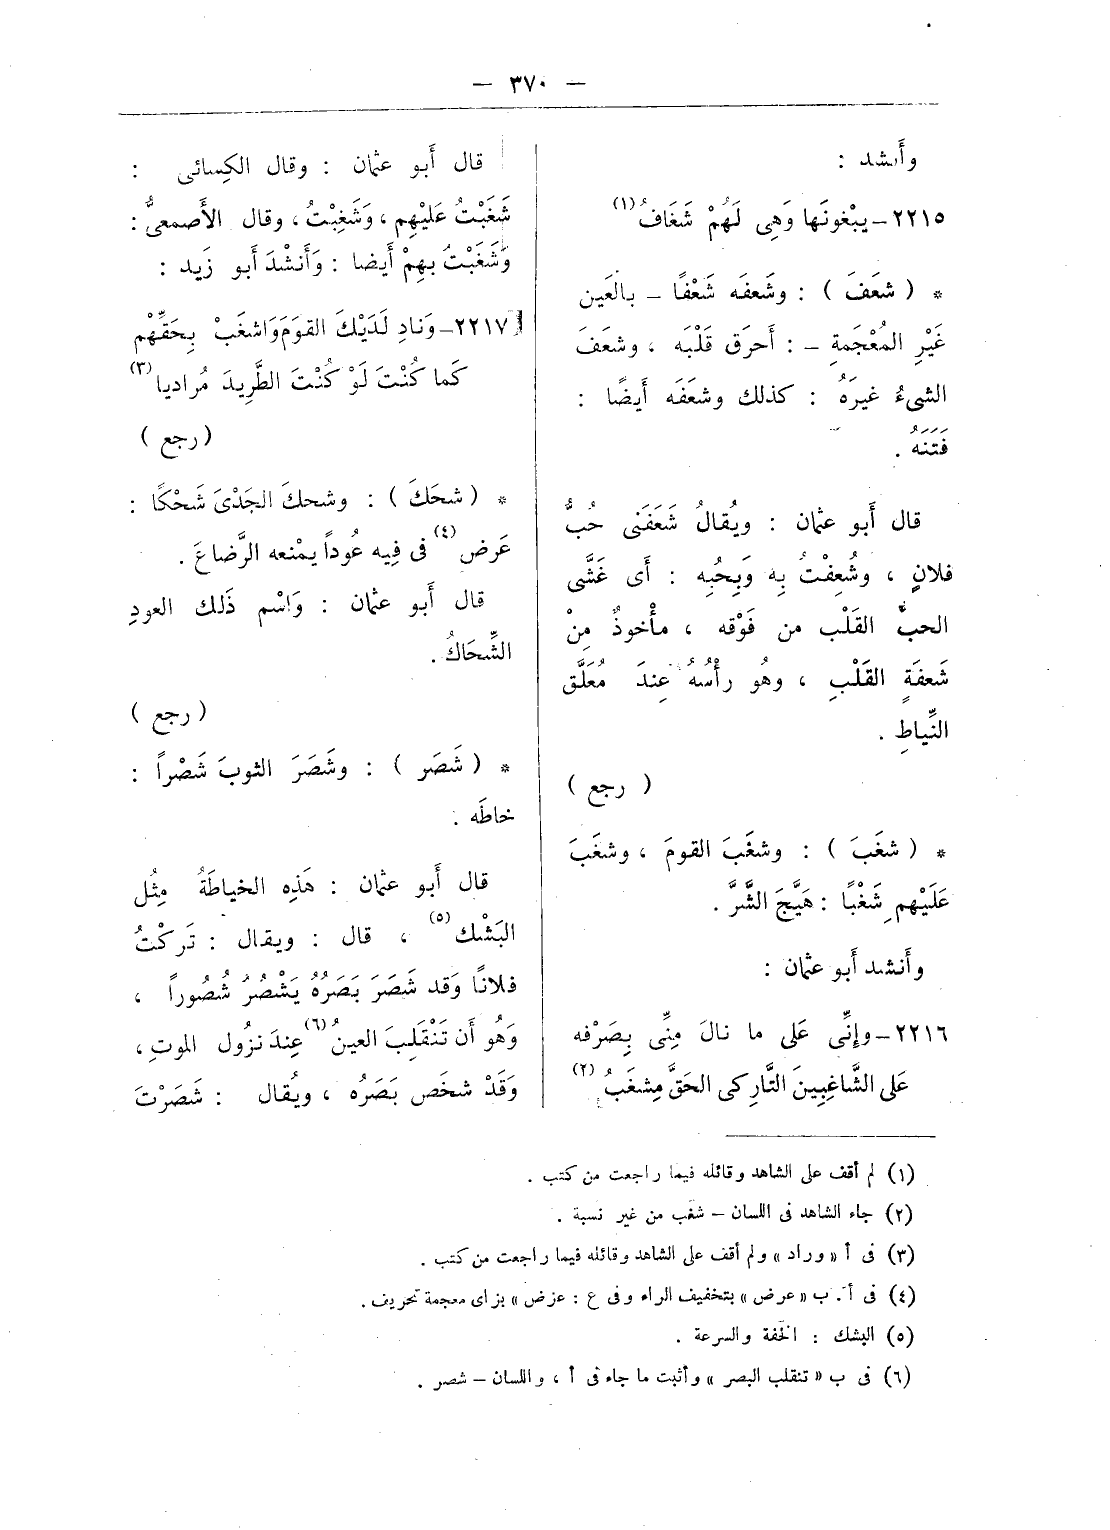 — ٣٧٠ —
وأَنشد :
٢٢١٥ – يبْغونَها وَهِى لَهُمْ شَغَافُ (١)
* ( شعَفَ ) : وشَعفَه شَعْفًا – بالعَين
غَيْرِ المُعْجَمةِ – : أَحرَق قَلْبَه ، وشعَفَ
الشىءُ غيرَهُ : كذلك وشعَفَه أَيضًا :
فَتَنَهُ .
قال أَبو عثمان : ويُقالُ شَعَفَنى حُبُّ
فلانٍ ، وشُعِفْتُ بِه وَبِحُبِه : أَى غَشَّى
الحبُّ القَلْب من فَوْقه ، مأْخوذٌ مِنْ
شَعفَةِ القَلْبِ ، وهُو رأْسُهُ عِندَ مُعَلَّق
النِّياطِ .
( رجع )
* ( شغَبَ ) : وشغَبَ القومَ ، وشغَبَ
عَلَيْهِم شَغْبًا : هَيَّجَ الشَّرَّ .
وأَنشد أَبو عثمان :
٢٢١٦ – وإِنِّى عَلى ما نالَ مِنِّى بِصَرْفه
عَلى الشَّاغِبِينَ التَّارِكى الحَقَّ مِشغَبُ (٢)
قال أَبو عثمان : وقال الكِسائى :
شَغَبْتُ عَلَيْهِم ، وَشَغِبْتُ ، وقال الأَصمعىُّ :
وَشَغَبْتُ بِهِمْ أَيضا : وَأَنشْدَ أَبو زَيد :
٢٢١٧ – وَنادِ لَدَيْكَ القوَمَ وَاشغَبْ بِحَقِّهْم
كَما كُنْتَ لَوْ كُنْتَ الطَّرِيدَ مُراديا (٣)
( رجع )
* ( شحَكَ ) : وشحكَ الجَدْىَ شَحْكًا :
عَرَض (٤) فى فِيه عُوداً يمْنعه الرَّضاعَ .
قال أَبو عثمان : وَاسْم ذَلك العودِ
الشِّحَاكُ .
( رجع )
* ( شَصَر ) : وشَصَرَ الثوبَ شَصْراً :
خاطَه .
قال أَبو عثمان : هَذِه الخياطَةُ مِثُل
البَشْك (٥) ، قال : ويقال : تَركْتُ
فلانًا وَقد شَصَرَ بَصَرُهُ يَشْصُرُ شُصُوراً ،
وَهُو أَن تَنْقَلِبَ العينُ (٦) عِندَ نزُول الموتِ ،
وَقَدْ شخَص بَصَرُه ، ويُقال : شَصَرْتَ
(١) لم أقف على الشاهد وقائله فيما راجعت من كتب .
(٢) جاء الشاهد فى اللسان – شغب من غير نسبة .
(٣) فى أ « وراد » ولم أقف على الشاهد وقائله فيما راجعت من كتب .
(٤) فى أ . ب « عرض » بتخفيف الراء وفى ع : عزض » بزاى معجمة تحريف .
(٥) البشك : الخفة والسرعة .
(٦) فى ب « تنقلب البصر » وأثبت ما جاء فى أ ، واللسان – شصر .